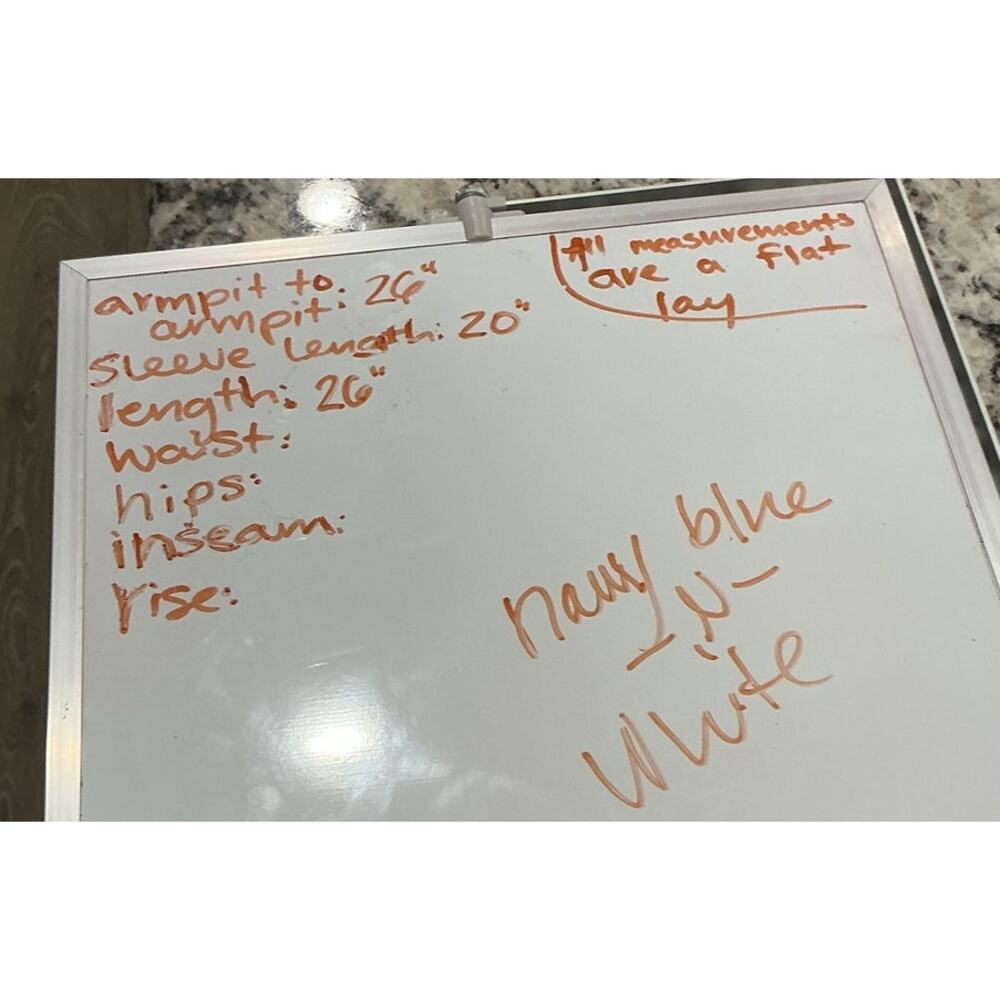 armpit to.
armpit: 26"
sleeve length: 20"
length: 26"
waist:
hips:
inseam:
rise:
All measurements
are a flat
lay
navy blue
-N-
White